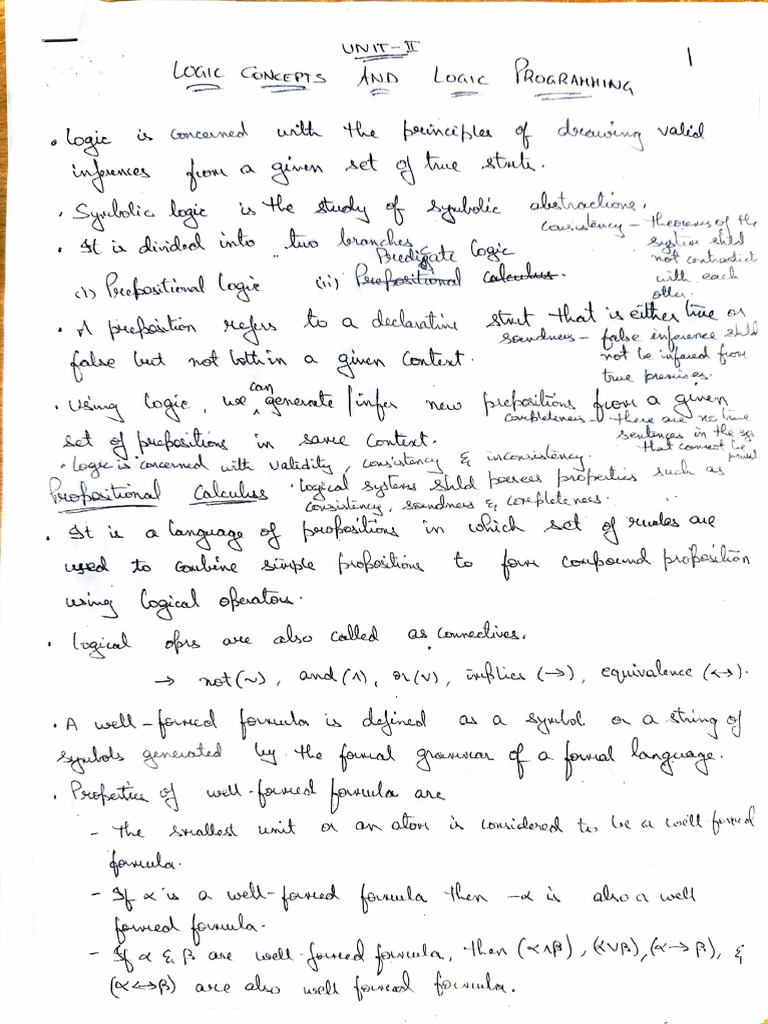 1
UNIT-II
LOGIC CONCEPTS AND LOGIC PROGRAMMING
. Logic is concerned with the principles of drawing valid
inferences from a given set of true stmts.
. Symbolic logic is the study of symbolic abstractions.
. It is divided into two branches
(i) Prepositional Logic (ii) Prepositional calculus.
Predicate Logic
consistency – theorems of the
system shld
not contradict
with each
other.
. A preposition refers to a declarative stmt that is either true or
false but not both in a given context.
soundness – false inference shld
not be infered from
true premises.
. Using logic, we can generate/infer new prepositions from a given
set of prepositions in same context.
completeness – there are no true
sentences in the sys
that cannot be
proved
. Logic is concerned with validity, consistency & inconsistency.
Propositional Calculus . Logical systems shld posses properties such as
consistency, soundness & completeness.
. It is a language of propositions in which set of rules are
used to combine simple propositions to form compound proposition
using logical operators.
. Logical oprs are also called as connectives.
→ not(~), and(∧), or(∨), implies (→), equivalence (↔).
. A well-formed formula is defined as a symbol or a string of
symbols generated by the formal grammar of a formal language.
. Properties of well-formed formula are
– The smallest unit or an atom is considered to be a well formed
formula.
– If α is a well-formed formula then -α is also a well
formed formula.
– If α & β are well-formed formula, then (α∧β), (α∨β), (α→β), &
(α↔β) are also well formed formula.